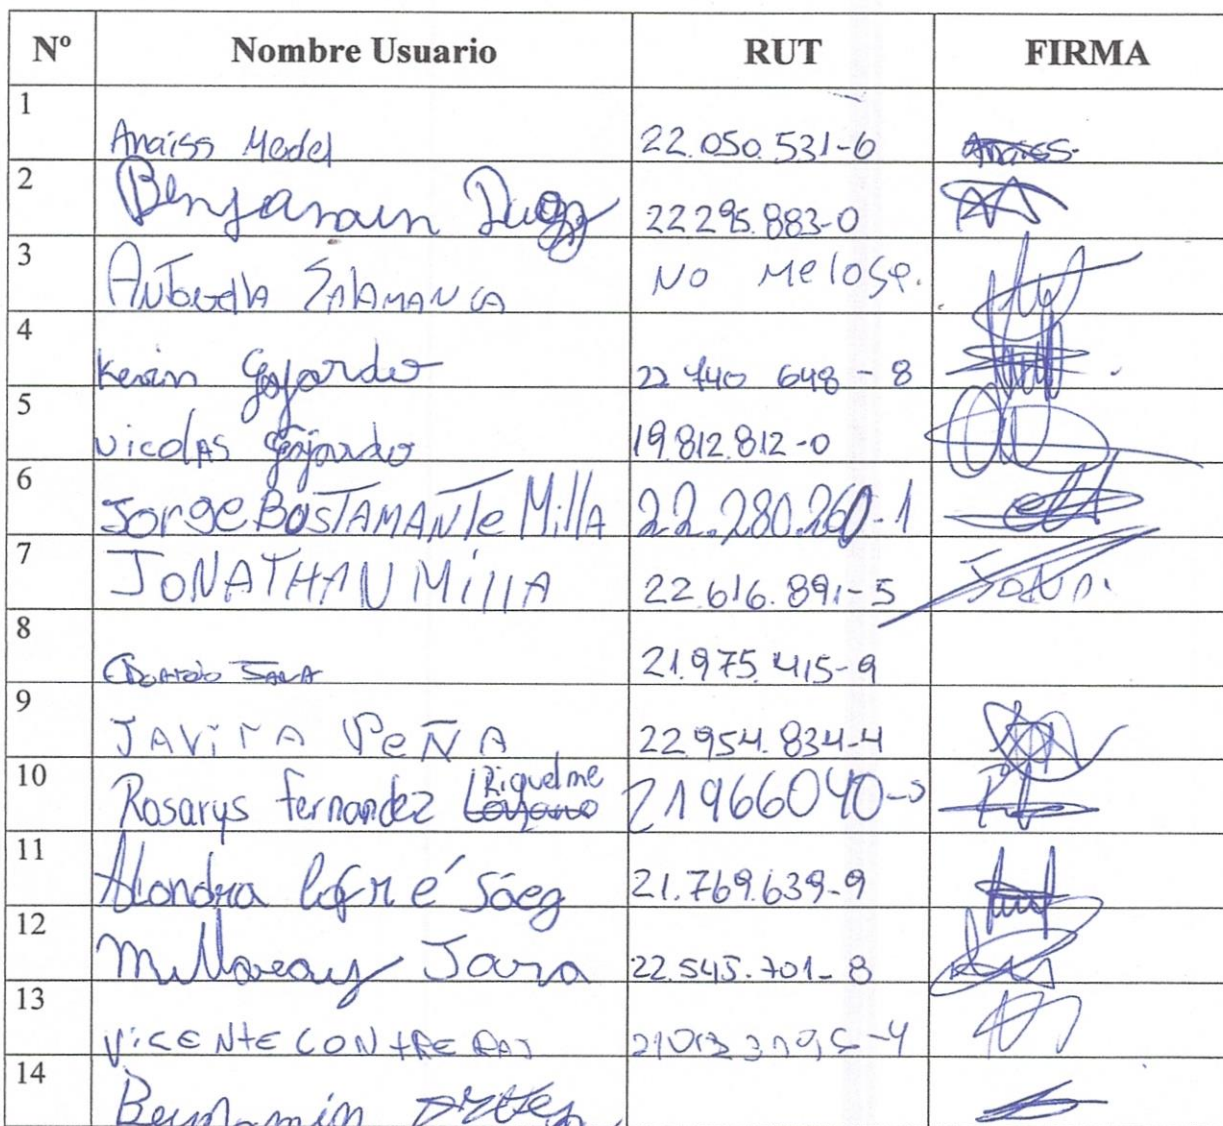 Nº Nombre Usuario RUT FIRMA
1 Anaiss Medel 22.050.531-6 Anaiss
2 Benjamin 22.295.883-0
3 Antonella SALAMANCA NO Me lo se.
4 Kevin Gajardo 22 440 648-8
5 Nicolas Gajardo 19.812.812-0
6 Jorge BUSTAMANTe MillA 22.280.260-1
7 JONATHAN MillA 22.616.891-5
8 JARA 21.975.415-9
9 JAViTA PeÑA 22.954.834-4
10 Rosarys fernandez Riquelme 21966040-
11 Alondra Lafré Sáez 21.769.639-9
12 Millaray Jara 22.545.701-8
13 ViCENtE CONtRERAS
14 Benjamin